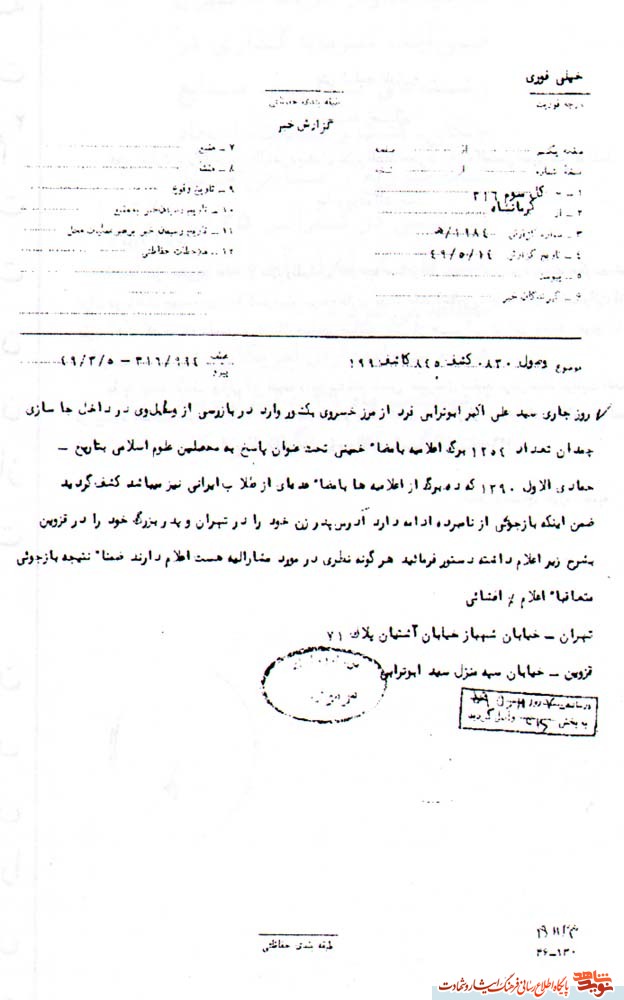 خیلی فوری
درجه فوریت
طبقه بندی حفاظتی
گزارش خبر
صفحه یکم از صفحه
نسخه شماره از نسخه
۱ – کل سوم ۳۱۶
۲ – از کرمانشاه
۳ – شماره گزارش ۱۹۸۴/ه
۴ – تاریخ گزارش ۴۹/۵/۱۴
۵ – پیوست
۶ – گیرندگان خبر
۷ – منبع
۸ – منشاء
۹ – تاریخ وقوع
۱۰ – تاریخ رسیدن خبر به منبع
۱۱ – تاریخ رسیدن خبر برهبر عملیات محل
۱۲ – ملاحظات حفاظتی
موضوع وصول ۰۸۳۰ کشف ۸۴۵ کاشف ۱۹۹ عطف پیرو ۳۱۶/۹۹۴ – ۴۹/۳/۵
روز جاری سید علی اکبر ابوترابی فرد از مرز خسروی بکشور وارد در بازرسی از وسائل وی در داخل جا سازی
چمدان تعداد ۱۲۵۴ برگ اعلامیه بامضاء خمینی تحت عنوان پاسخ به محصلین علوم اسلامی بتاریخ –
جمادی الاول ۱۳۹۰ که ده برگ از اعلامیه ها بامضاء عده‌ای از طلاب ایرانی نیز میباشد کشف گردید
ضمن اینکه بازجوئی از نامبرده ادامه دارد آدرس پدر زن خود را در تهران و پدر بزرگ خود را در قزوین
بشرح زیر اعلام داشته دستور فرمائید هر گونه نظری در مورد مشارالیه هست اعلام دارند ضمناً نتیجه بازجوئی
متعاقباً اعلام / افشائی
تهران – خیابان شهباز خیابان آشتیان پلاک ۷۱
قزوین – خیابان سپه منزل سید ابوترابی
طبقه بندی حفاظتی
۳۶–۱۳۰
نوید شاهد
پایگاه اطلاع رسانی فرهنگ ایثار و شهادت